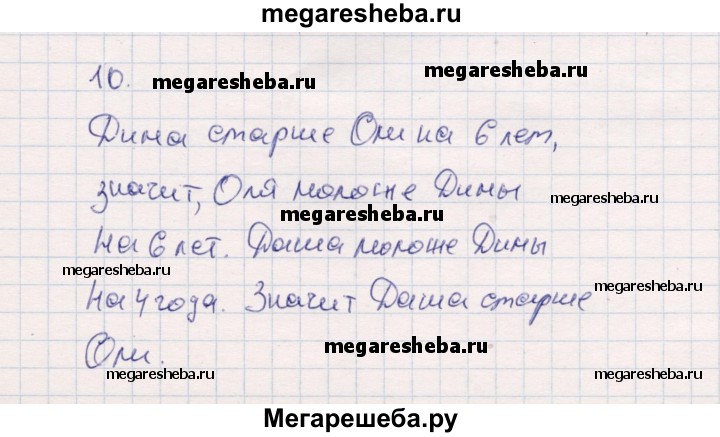 megaresheba.ru
10. megaresheba.ru megaresheba.ru
Дима старше Оли на 6 лет,
значит, Оля моложе Димы
megaresheba.ru megaresheba.ru
На 6 лет. Даша моложе Димы
megaresheba.ru megaresheba.ru
на 4 года. Значит Даша старше
Оли. megaresheba.ru
megaresheba.ru megaresheba.ru
Мегарешеба.ру